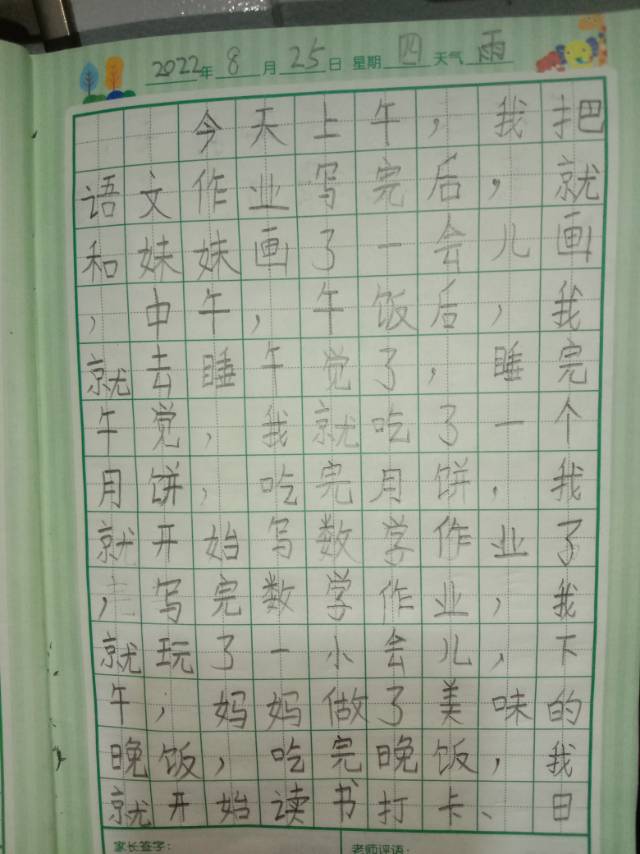 2022年8月25日 星期四 天气雨
今天上午，我把
语文作业写完后，就
和妹妹画了一会儿画
，中午，午饭后，我
就去睡午觉了，睡完
午觉，我就吃了一个
月饼，吃完月饼，我
就开始写数学作业了
，写完数学作业，我
就玩了一小会儿，下
午，妈妈做了美味的
晚饭，吃完晚饭，我
就开始读书打卡、日
家长签字： 老师评语：